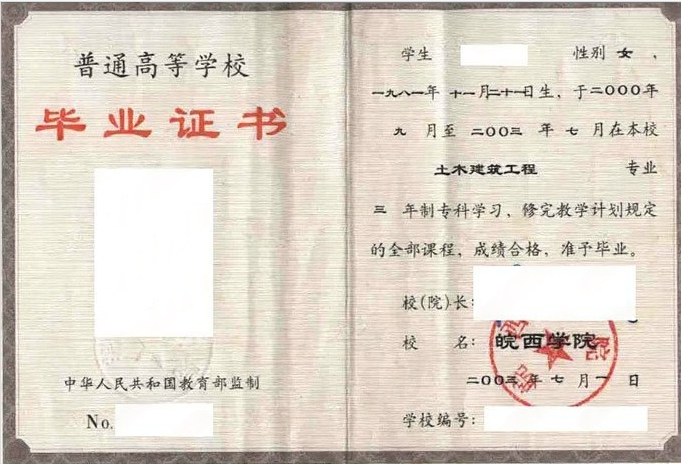 普通高等学校
毕业证书
中华人民共和国教育部监制
No.
学生 性别 女 ，
一九八一年 十一月二十一日生，于二〇〇〇年
九 月至 二〇〇三 年 七 月在本校
土木建筑工程 专业
三 年制专科学习，修完教学计划规定
的全部课程，成绩合格，准予毕业。
校(院)长：
校 名： 皖西学院
二〇〇三 年 七 月 一 日
学校编号：